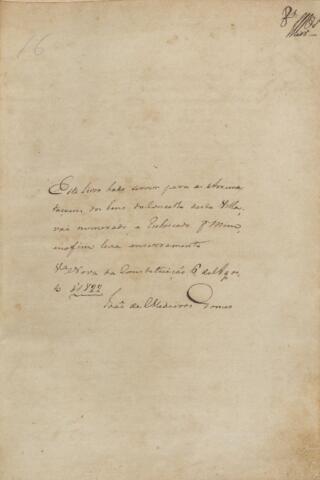 16
Este livro hade servir para as arrema
taçoens dos bens do Concelho desta Villa,
vai numerado, e Rubricado p. mim
e no fim leva encerramento
V.a Nova da Constituição 6 de Ag.to
de 1822
João de Medeiros Gomes